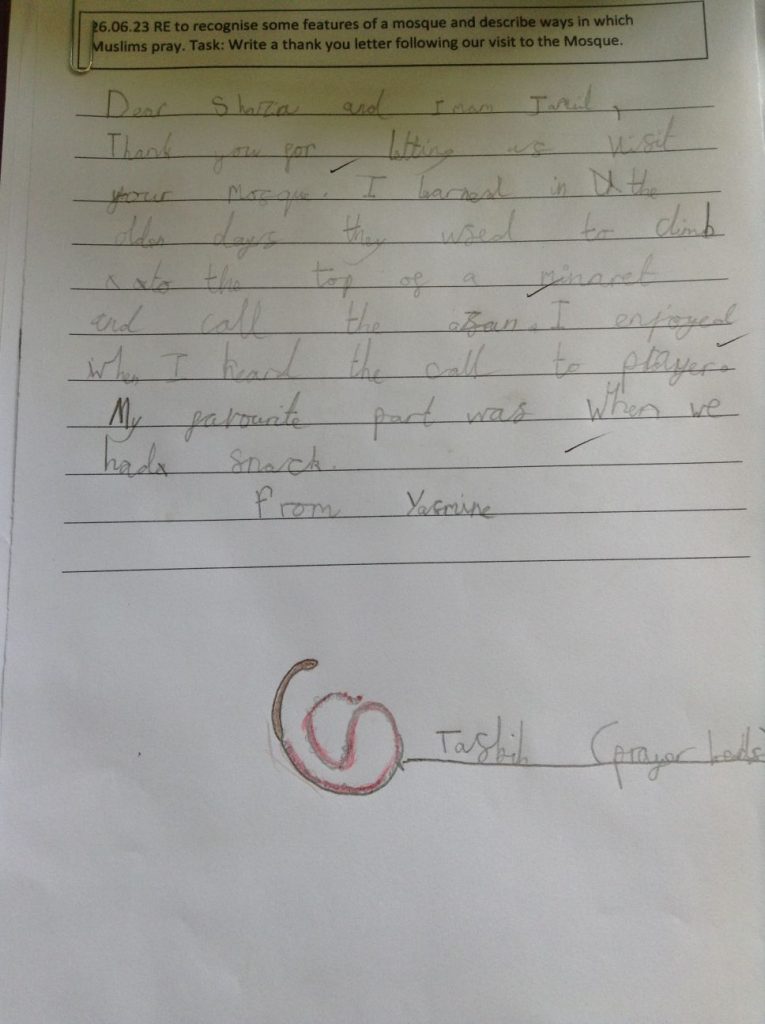 26.06.23 RE to recognise some features of a mosque and describe ways in which
Muslims pray. Task: Write a thank you letter following our visit to the Mosque.
Dear Shazia and Imam
Thank you for letting us visit
your mosque. I learned in the
olden days they used to climb
to the top of a minaret
and call the azan. I enjoyed
when I heard the call to prayer.
My favourite part was when we
had snack.
from Yasmine
Tasbih (prayer beads)